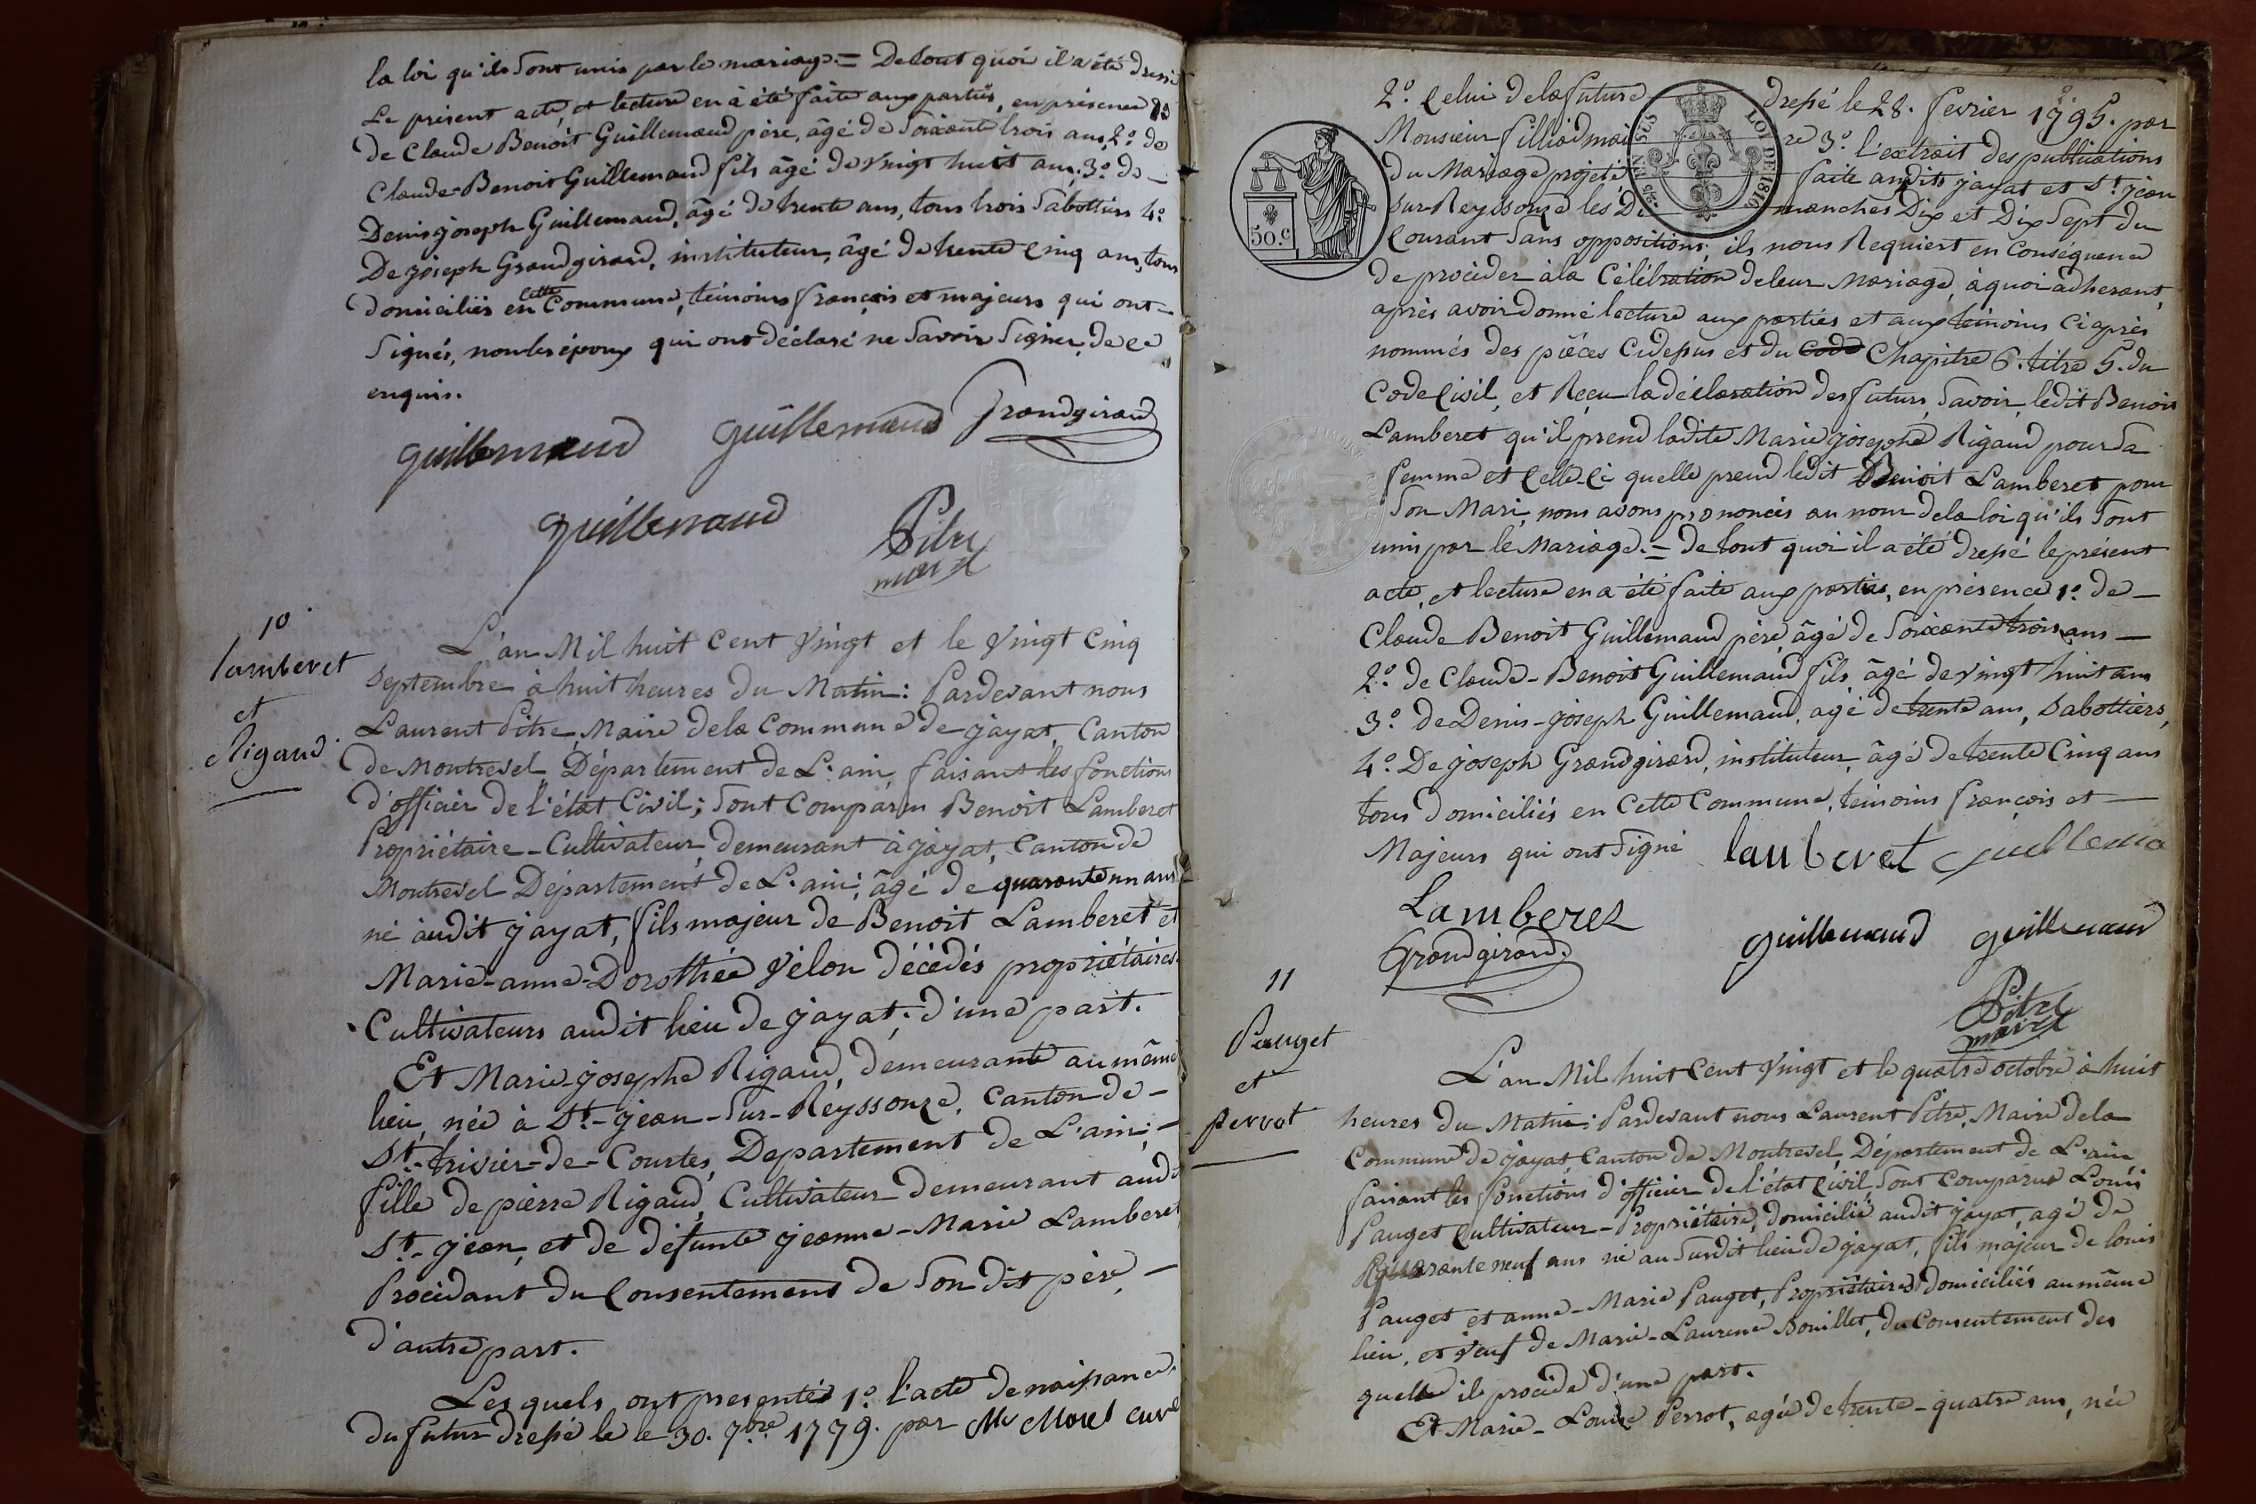 la loi qu'ils sont unis par le mariage. = De tout quoi il a été dressé
Le présent acte, et lecture en à été faite aux parties, en présence 1º
de Claude Benoit Guillemaud père, âgé de soixante trois ans, 2º de
Claude-Benoit Guillemaud fils âgé de vingt huit ans. 3º de
Denis joseph Guillemaud, âgé de trente ans, tous trois sabottiers 4º
De joseph Grandgirard, instituteur, âgé de trente cinq ans, tous
domiciliés en cette Commune, témoins françois et majeurs qui ont
signés, non les époux qui ont déclaré ne savoir signer, de ce
enquis.
guillemaud guillemaud Grandgirard
guillemaud Pitre
maire
10
lamberet
et
Rigaud
L'an Mil huit cent vingt et le vingt cinq
Septembre à huit heures du Matin: Pardevant nous
Laurent Pitre, Maire de la Commune de jayat, Canton
de Montrevel, Département de L'ain, faisant les fonctions
d'officier de l'état civil; sont comparu Benoit Lamberet
Propriétaire-Cultivateur, demeurant à jayat, canton de
Montrevel Département de L'ain, âgé de quarante un ans
né audit jayat, fils majeur de Benoit Lamberet et
Marie-anne-Dorothée Vélon décédés propriétaires
Cultivateurs audit lieu de jayat; d'une part.
Et Marie-josephe Rigaud, demeurante au même
lieu, née à St-jean-sur-Reyssouze, canton de-
St-trivier-de-Courtes, Departement de L'ain;
fille de pierre Rigaud, Cultivateur demeurant audt
St-jean, et de défunte jeanne-Marie Lamberet
Procédant du Consentement de son dit père,
d'autre part.
Les quels ont presentés 1º l'acte de naissance
du futur dressé le le 30. 7bre 1779. par Mr Morel curé
2º. Celui de la future dressé le 28. fevrier 1795. par
Monsieur filliod maire 3º l'extrait des publications
du Mariage projeté faite audits jayat et St. jean
sur Reyssouze les Dimanches Dix et Dix sept du
Courant sans oppositions; ils nous Requiert en Conséquence
de procéder à la Célébration de leur Mariage, à quoi adherant,
après avoir donné lecture aux parties et aux témoins ci après
nommés des pièces cidessus et du Code Chapitre 6. titre 5. du
Code Civil, et Reçu la déclaration des futurs, savoir, ledit Benoit
Lamberet qu'il prend ladite Marie josephe Rigaud pour sa
femme et Celle-ci quelle prend ledit Benoit Lamberet pour
son Mari, nous avons prononcés au nom de la loi qu'ils sont
unis par le Mariage. = de tout quoi il a été dressé le présent
acte, et lecture en a été faite aux parties, en présence 1º. de
Claude Benoit Guillemaud père, âgé de soixante trois ans
2º. de Claude-Benoit Guillemaud fils âgé de vingt huit ans
3º. de Denis-joseph Guillemaud, agé de trente ans, sabottiers,
4º. De joseph Grandgirard, instituteur, âgé de trente cinq ans
tous domiciliés en Cette Commune, témoins françois et
Majeurs qui ont signé lamberet
Lamberet
Grandgirard guillemaud guillemaud
Pitre
maire
11
Pauget
et
perrot
L'an Mil huit cent vingt et le quatre octobre à huit
heures du Matin: Pardevant nous Laurent Pitre, Maire de la
Commune de jayat, canton de Montrevel, Département de L'ain
faisant les fonctions d'officier de l'état civil sont comparus Louis
Pauget Cultivateur-Propriétaire, domicilié audit jayat, agé de
quarante neuf ans né au susdit lieu de jayat, fils majeur de louis
Pauget et anne-Marie Pauget, Propriétaires domiciliés au même
lieu, et veuf de Marie-Laurence Bouillet, du Consentement des
quelle il procède d'une part.
Et Marie-Louise Perrot, agée de trente-quatre ans, née
50.c
LOI DE 1816